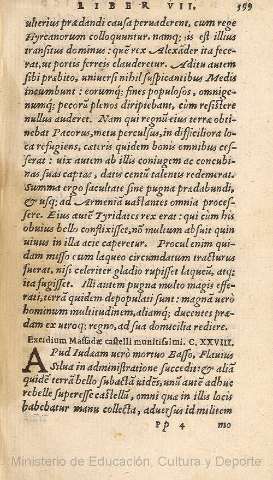 LIBER VII. 599
ulterius prædandi causa peruaderent, cum rege
Hyrcanorum colloquuntur. namq; is est illius
transitus dominus: quē rex Alexāder ita fece
rat, ut portis ferreis clauderetur. Aditu autem
sibi præbito, uniuersi nihil suspicantibus Medis
incumbunt: eorumq; fines populosos, omnige-
numq; pecorū plenos diripiebant, cum resistere
nullus auderet. Nam qui regnū eius terræ obti-
nebat Pacorus, metu perculsus, in difficiliora lo
ca refugiens, cæteris quidem bonis omnibus ces-
serat: uix autem ab illis coniugem ac concubi-
nas suas captas, datis centū talentis redemerat.
Summa ergo facultate sine pugna prædabundi,
& usq; ad Armeniā uastantes omnia proces-
sere. Eius autē Tyridates rex erat: qui cùm his
obuius bello conflixisset, nō multum abfuit quin
uiuus in illa acie caperetur. Procul enim qui-
dam misso cum laqueo circundatum tracturus
fuerat, nisi celeriter gladio rupisset laqueū, atq;
ita fugisset. Illi autem pugna multo magis effe-
rati, terrā quidem depopulati sunt: magnā uerò
hominum multitudinem, aliamq; ducentes præ-
dam ex utroq; regno, ad sua domicilia rediere.
Excidium Massadæ castelli munitissimi. C. XXVIII.
APud Iudæam uerò mortuo Basso, Flauius
Silua in administratione succedit: & aliā
quidē terrā bello subactā uidēs, unū autē adhuc
rebelle superesse castellū, omni quæ in illa locis
habebatur manu collecta, aduersus id militem
pp 4 mo
Ministerio de Educación, Cultura y Deporte